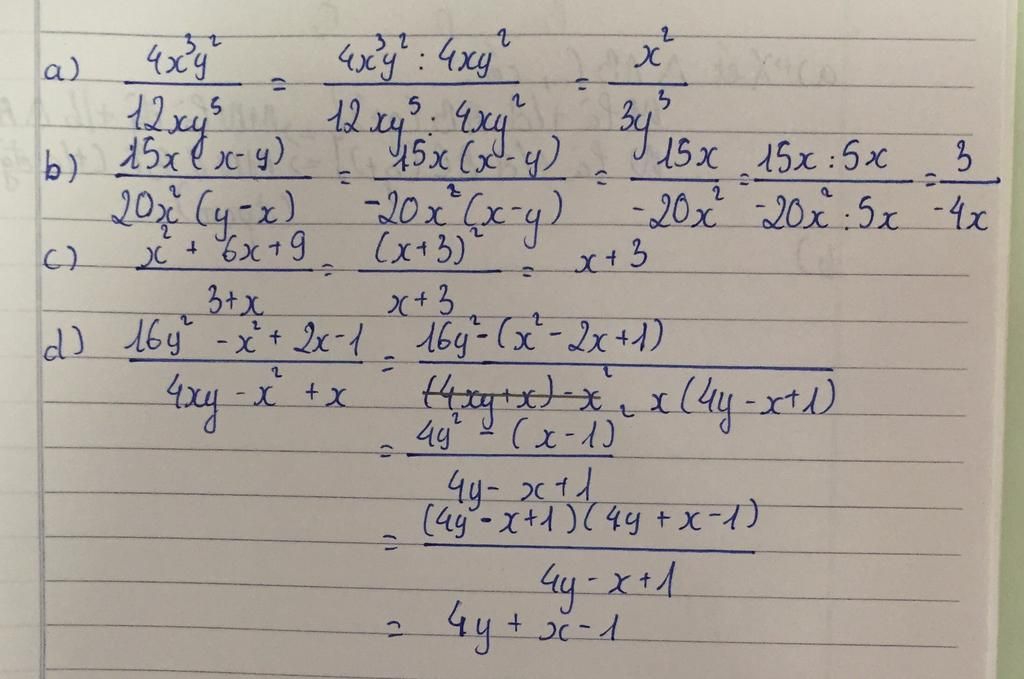 a) 4x³y² / 12xy⁵ = 4x³y² : 4xy² / 12xy⁵ : 4xy² = x² / 3y³
b) 15x(x-y) / 20x²(y-x) = 15x(x-y) / -20x²(x-y) = 15x / -20x² = 15x : 5x / -20x² : 5x = 3 / -4x
c) x² + 6x + 9 / 3+x = (x+3)² / x+3 = x+3
d) 16y² - x² + 2x - 1 / 4xy - x² + x = 16y² - (x² - 2x + 1) / x(4y - x + 1)
= 4y² - (x-1)² / 4y - x + 1
= (4y - x + 1)(4y + x - 1) / 4y - x + 1
= 4y + x - 1